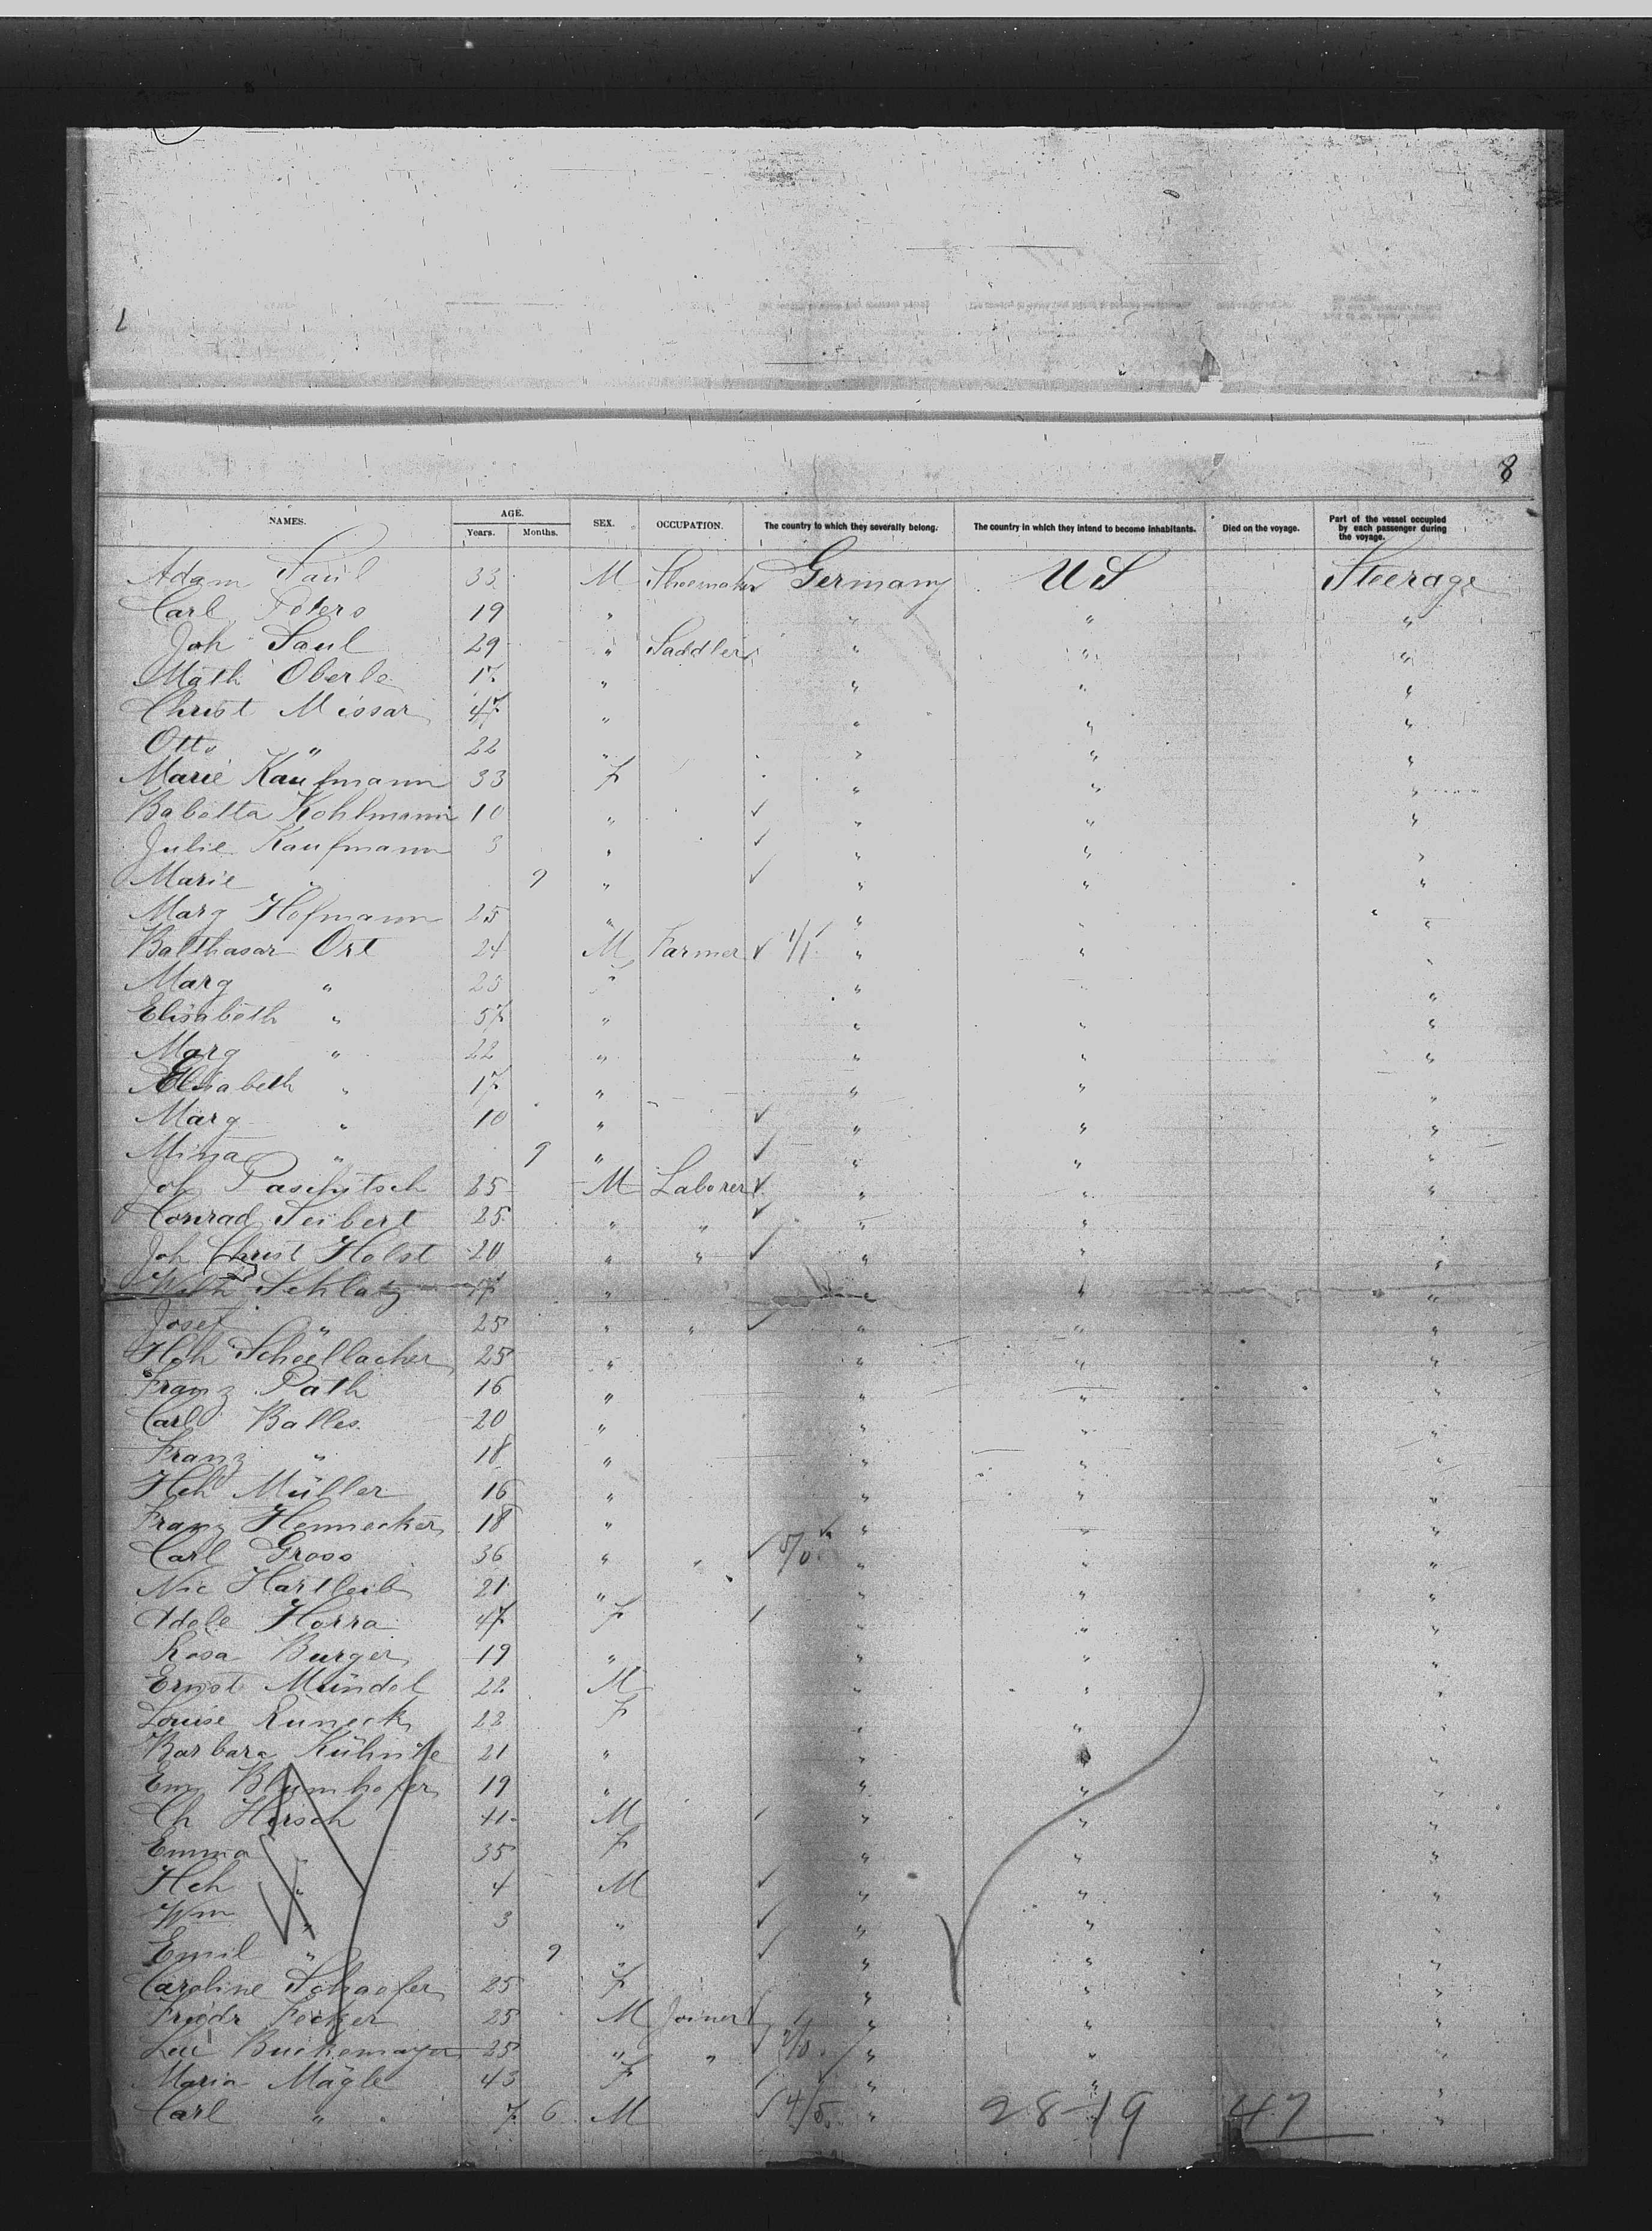 8
NAMES. AGE. Years. Months. SEX. OCCUPATION. The country to which they severally belong. The country in which they intend to become inhabitants. Died on the voyage. Part of the vessel occupied by each passenger during the voyage.
Adam Saul 33 M Shoemaker Germany U S Steerage
Carl Peters 19 " " " "
Joh Saul 29 " Saddler " " "
Math Oberle 17 " " " "
Christ Missar 47 " " " "
Otto " 22 " " " "
Marie Kaufmann 33 F " " "
Babetta Kohlmann 10 " ✓ " " "
Julie Kaufmann 3 " ✓ " " "
Marie " 9 " ✓ " " "
Marg Hofmann 25 " " " "
Balthasar Ort 24 M Farmer ✓ 1/1 " " "
Marg " 23 " " "
Elisabeth " 57 " " " "
Marg " 22 " " " "
Elisabeth " 17 " " " "
Marg " 10 " ✓ " " "
Mina " 9 " ✓ " " "
Joh 25 M Laborer ✓ " " "
Conrad Seibert 25 " " ✓ " " "
Joh Christ Holst 20 " " ✓ " " "
Wilh Schlatz 17 " " "
Josef " 25 " " ✓ " " "
Hch Schoellacher 25 " " " "
Franz Path 16 " " " "
Carl Balles 20 " " " "
Franz " 18 " " " "
Hch Müller 16 " " " "
Franz Hennecker 18 " " " "
Carl Gross 36 " " ✓ 5/0 " " "
Nic Hartleib 21 " " " "
Adele Horra 47 F ✓ " " "
Rosa Burger 19 " " " "
Ernst Mündel 22 M " " "
Louise Runeck 22 F " " "
Barbara 21 " " " "
Em Blumhofer 19 " " " "
Ch Hirsch 41 M ✓ " " "
Emma " 35 F " " "
Hch " 4 M ✓ " " "
Wm " 3 " ✓ " " "
Emil " 9 " ✓ " " "
Caroline Schaefer 25 F " " "
Friedr Fecker 25 M Joiner ✓ " " "
Buckemayer 25 " " ✓ " " "
Maria Mägle 43 F ✓ " " "
Carl " 7 6 M ✓ 4/5 " 28-19 47 "